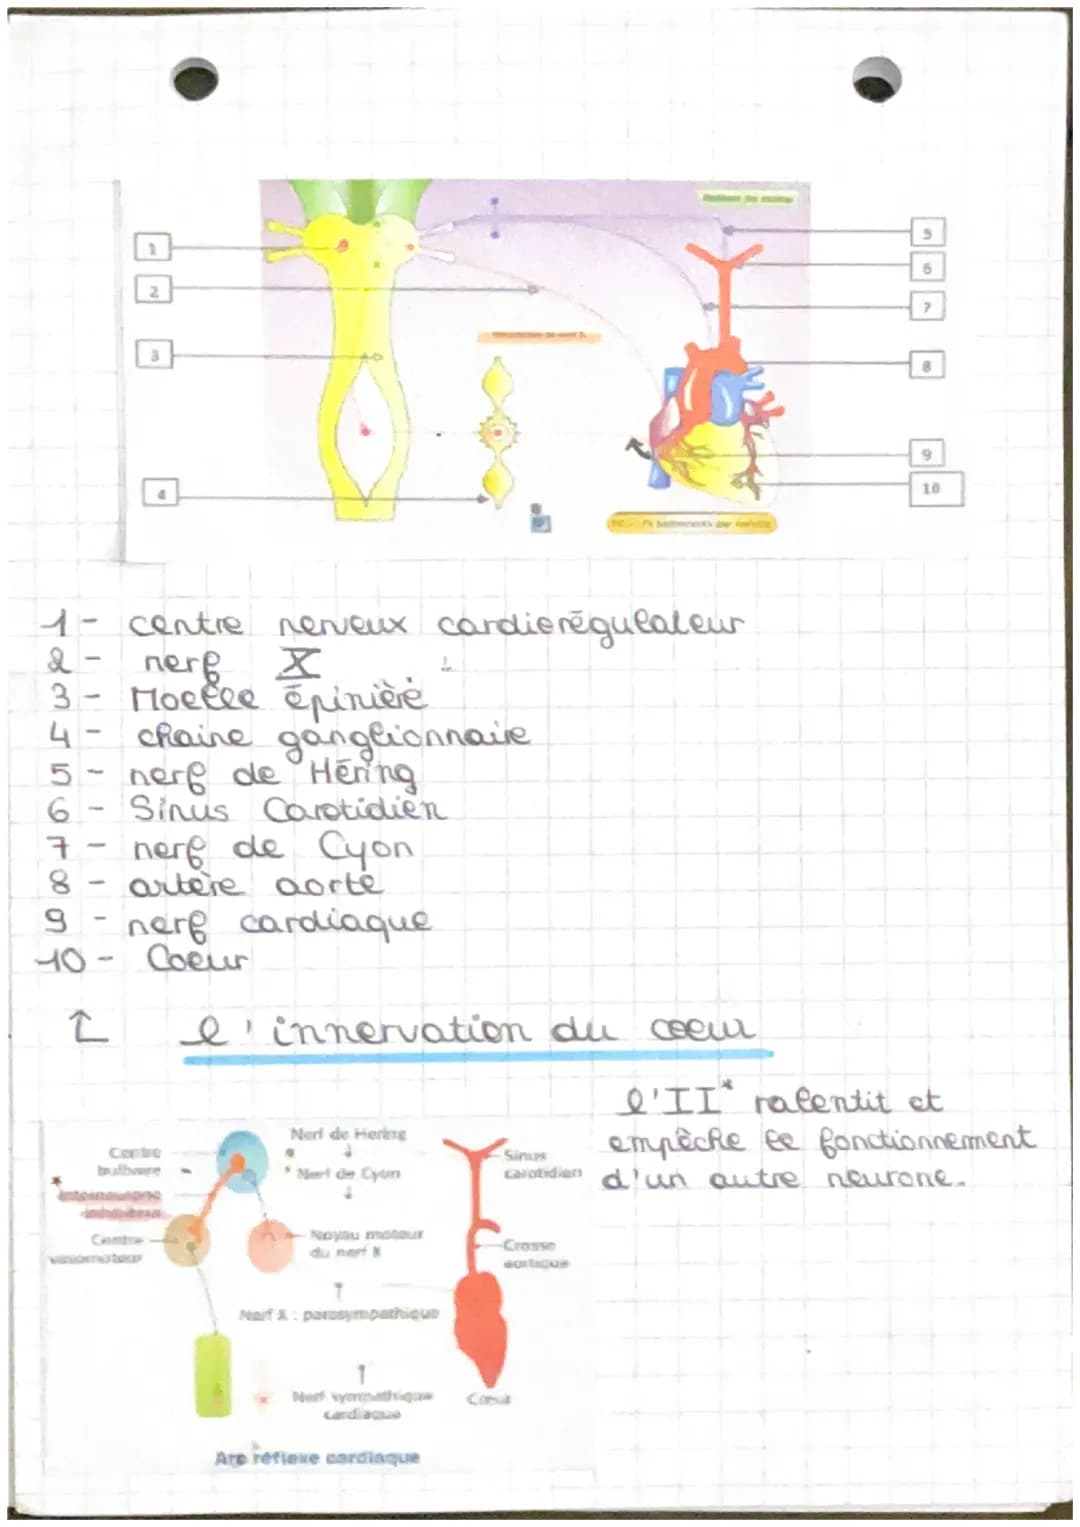 1
2
3
4
5
6
7
8
9
10
1- centre nerveux cardierégulateur
2- nerf X
3- Moelle épinière
4- chaine ganglionnaire
5- nerf de Héring
6- Sinus Carotidien
7- nerf de Cyon
8- artère aorte
9- nerf cardiaque
10- Coeur
↑ l'innervation du coeur
l'II* ralentit et
empêche le fonctionnement
d'un autre neurone.
Centre
bulbaire
* Interneurone
inhibiteur
Centre
vasomoteur
Nerf de Hering
Nerf de Cyon
Noyau moteur
du nerf X
Nerf X : parasympathique
Nerf sympathique
cardiaque
Sinus
carotidien
Crosse
aortique
Cœur
Arc réflexe cardiaque